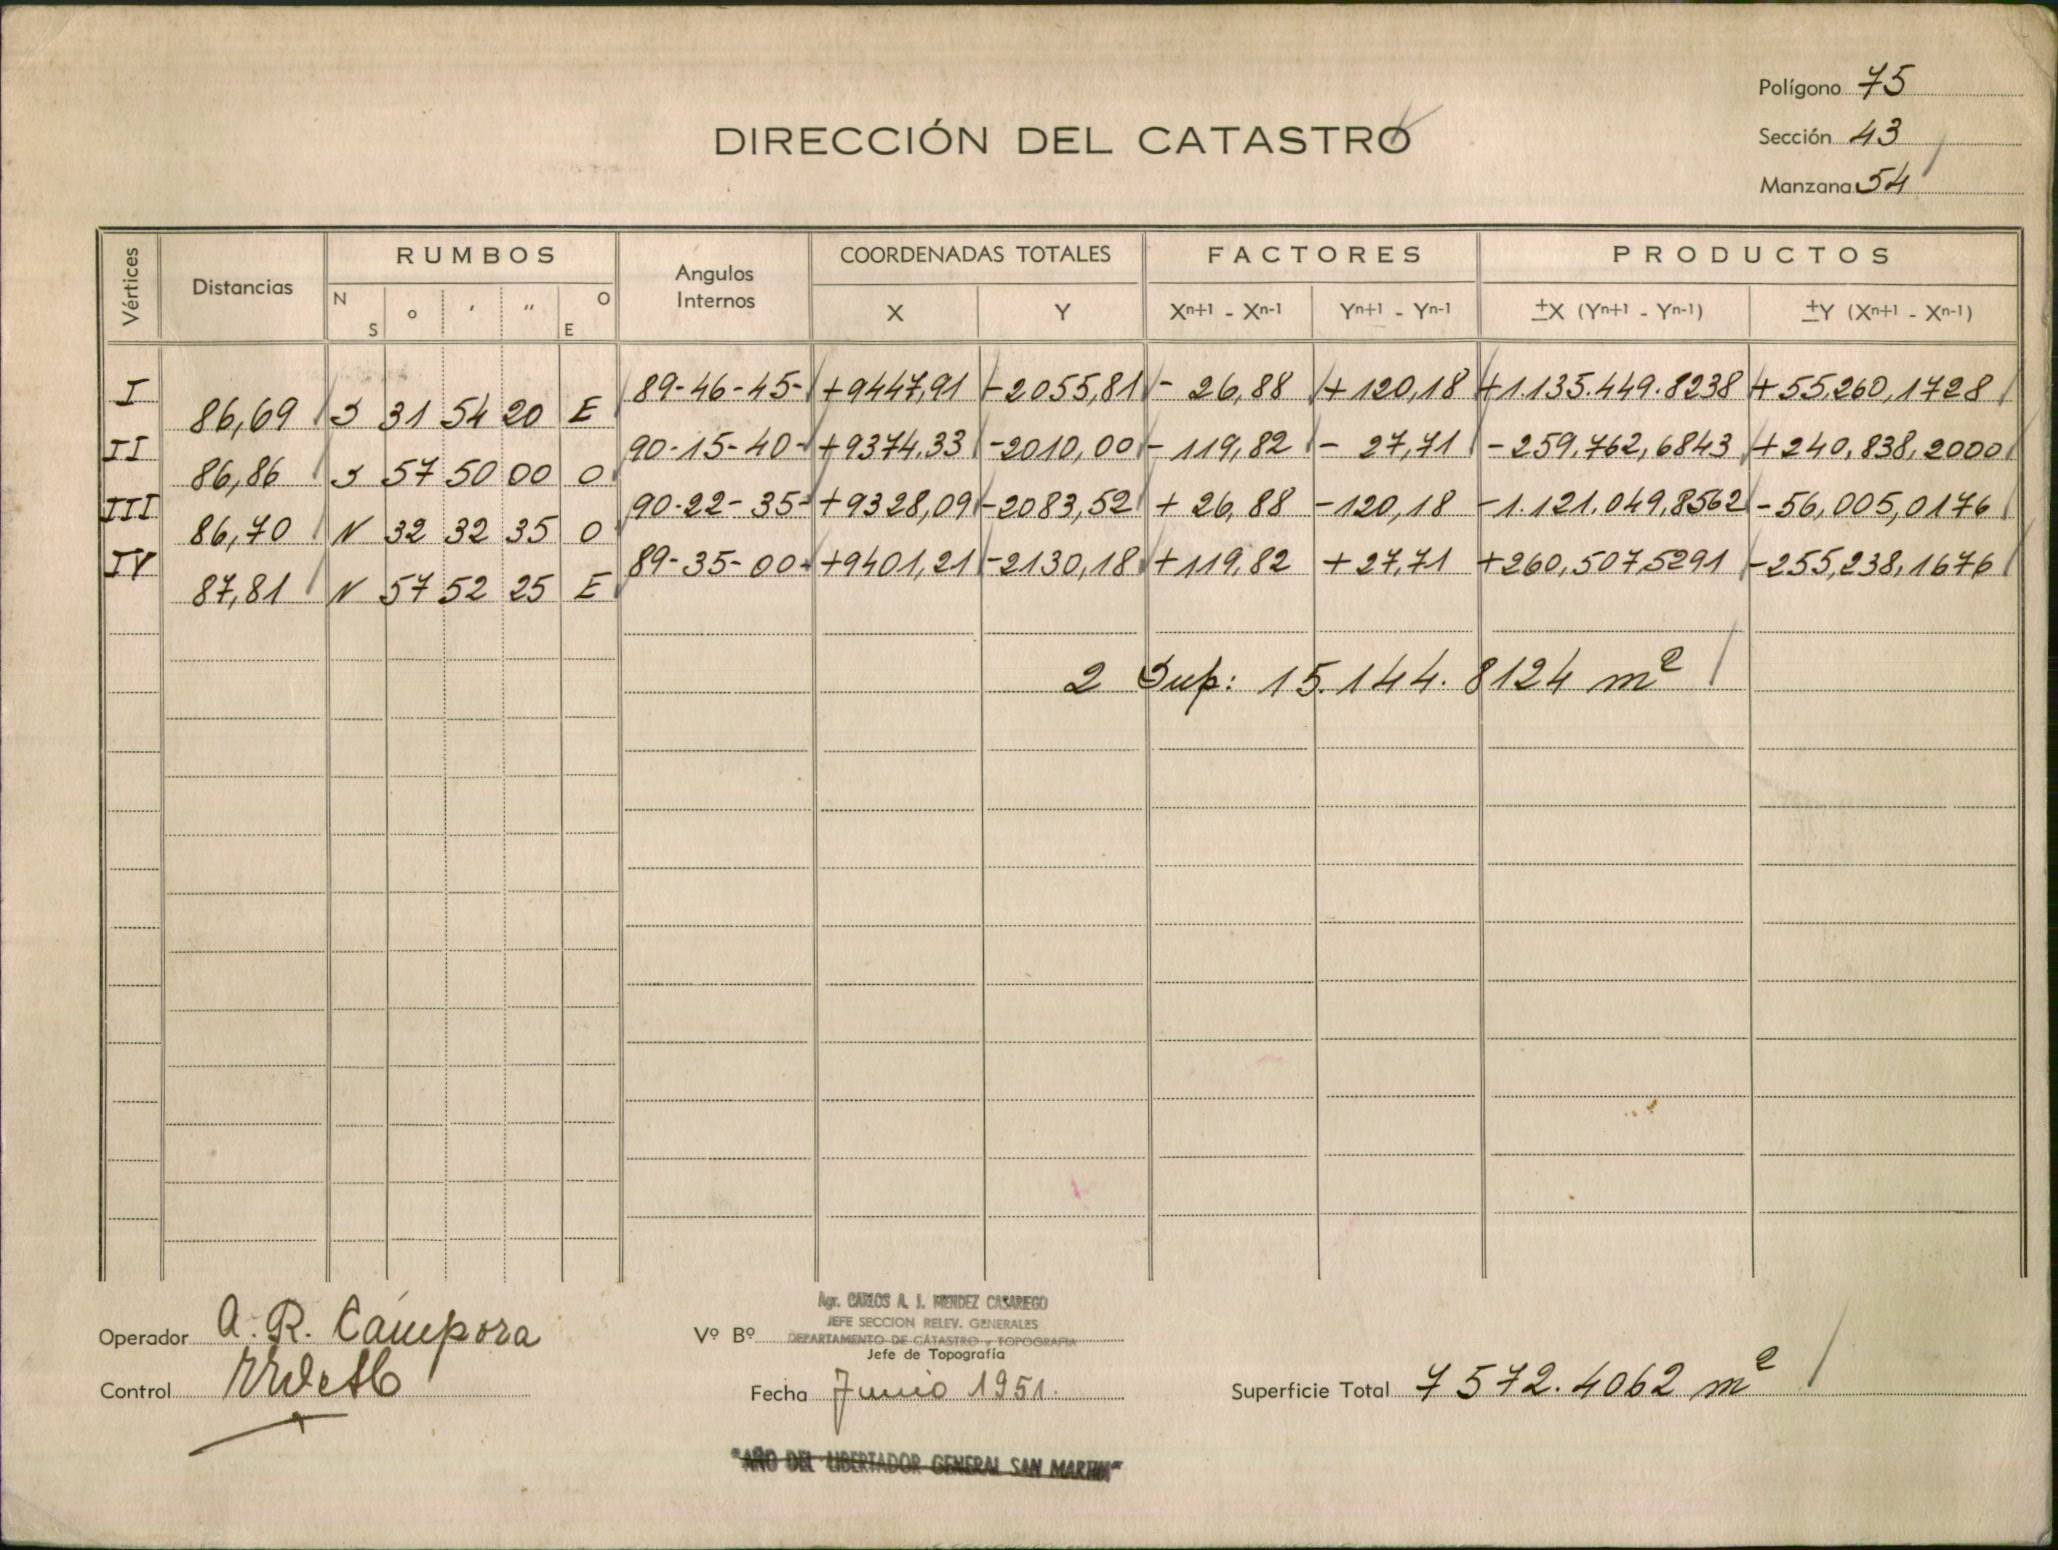 Polígono 75
DIRECCIÓN DEL CATASTRO
Sección 43
Manzana 54
Vértices Distancias RUMBOS Angulos Internos COORDENADAS TOTALES FACTORES PRODUCTOS
N S ° ' " O E X Y Xⁿ⁺¹ - Xⁿ⁻¹ Yⁿ⁺¹ - Yⁿ⁻¹ ±X (Yⁿ⁺¹ - Yⁿ⁻¹) ±Y (Xⁿ⁺¹ - Xⁿ⁻¹)
I 89-46-45- +9447,91 -2055,81 - 26,88 +120,18 +1.135.449.8238 +55,260,1728
86,69 S 31 54 20 E
II 90-15-40- +9374,33 -2010,00 -119,82 - 27,71 -259.762,6843 +240,838,2000
86,86 S 57 50 00 O
III 90-22-35- +9328,09 -2083,52 + 26,88 -120,18 -1.121.049,8562 -56,005,0176
86,70 N 32 32 35 O
IV 89-35-00- +9401,21 -2130,18 +119,82 +27,71 +260,507,5291 -255,238,1676
87,81 N 57 52 25 E
2 Sup: 15.144.8124 m²
Operador A. R. Cámpora
Control
Vº Bº
Agr. CARLOS A. J. MENDEZ CASARIEGO
JEFE SECCION RELEV. GENERALES
DEPARTAMENTO DE CATASTRO y TOPOGRAFIA
Jefe de Topografía
Fecha Junio 1951.
Superficie Total 7572.4062 m²
"AÑO DEL LIBERTADOR GENERAL SAN MARTIN"